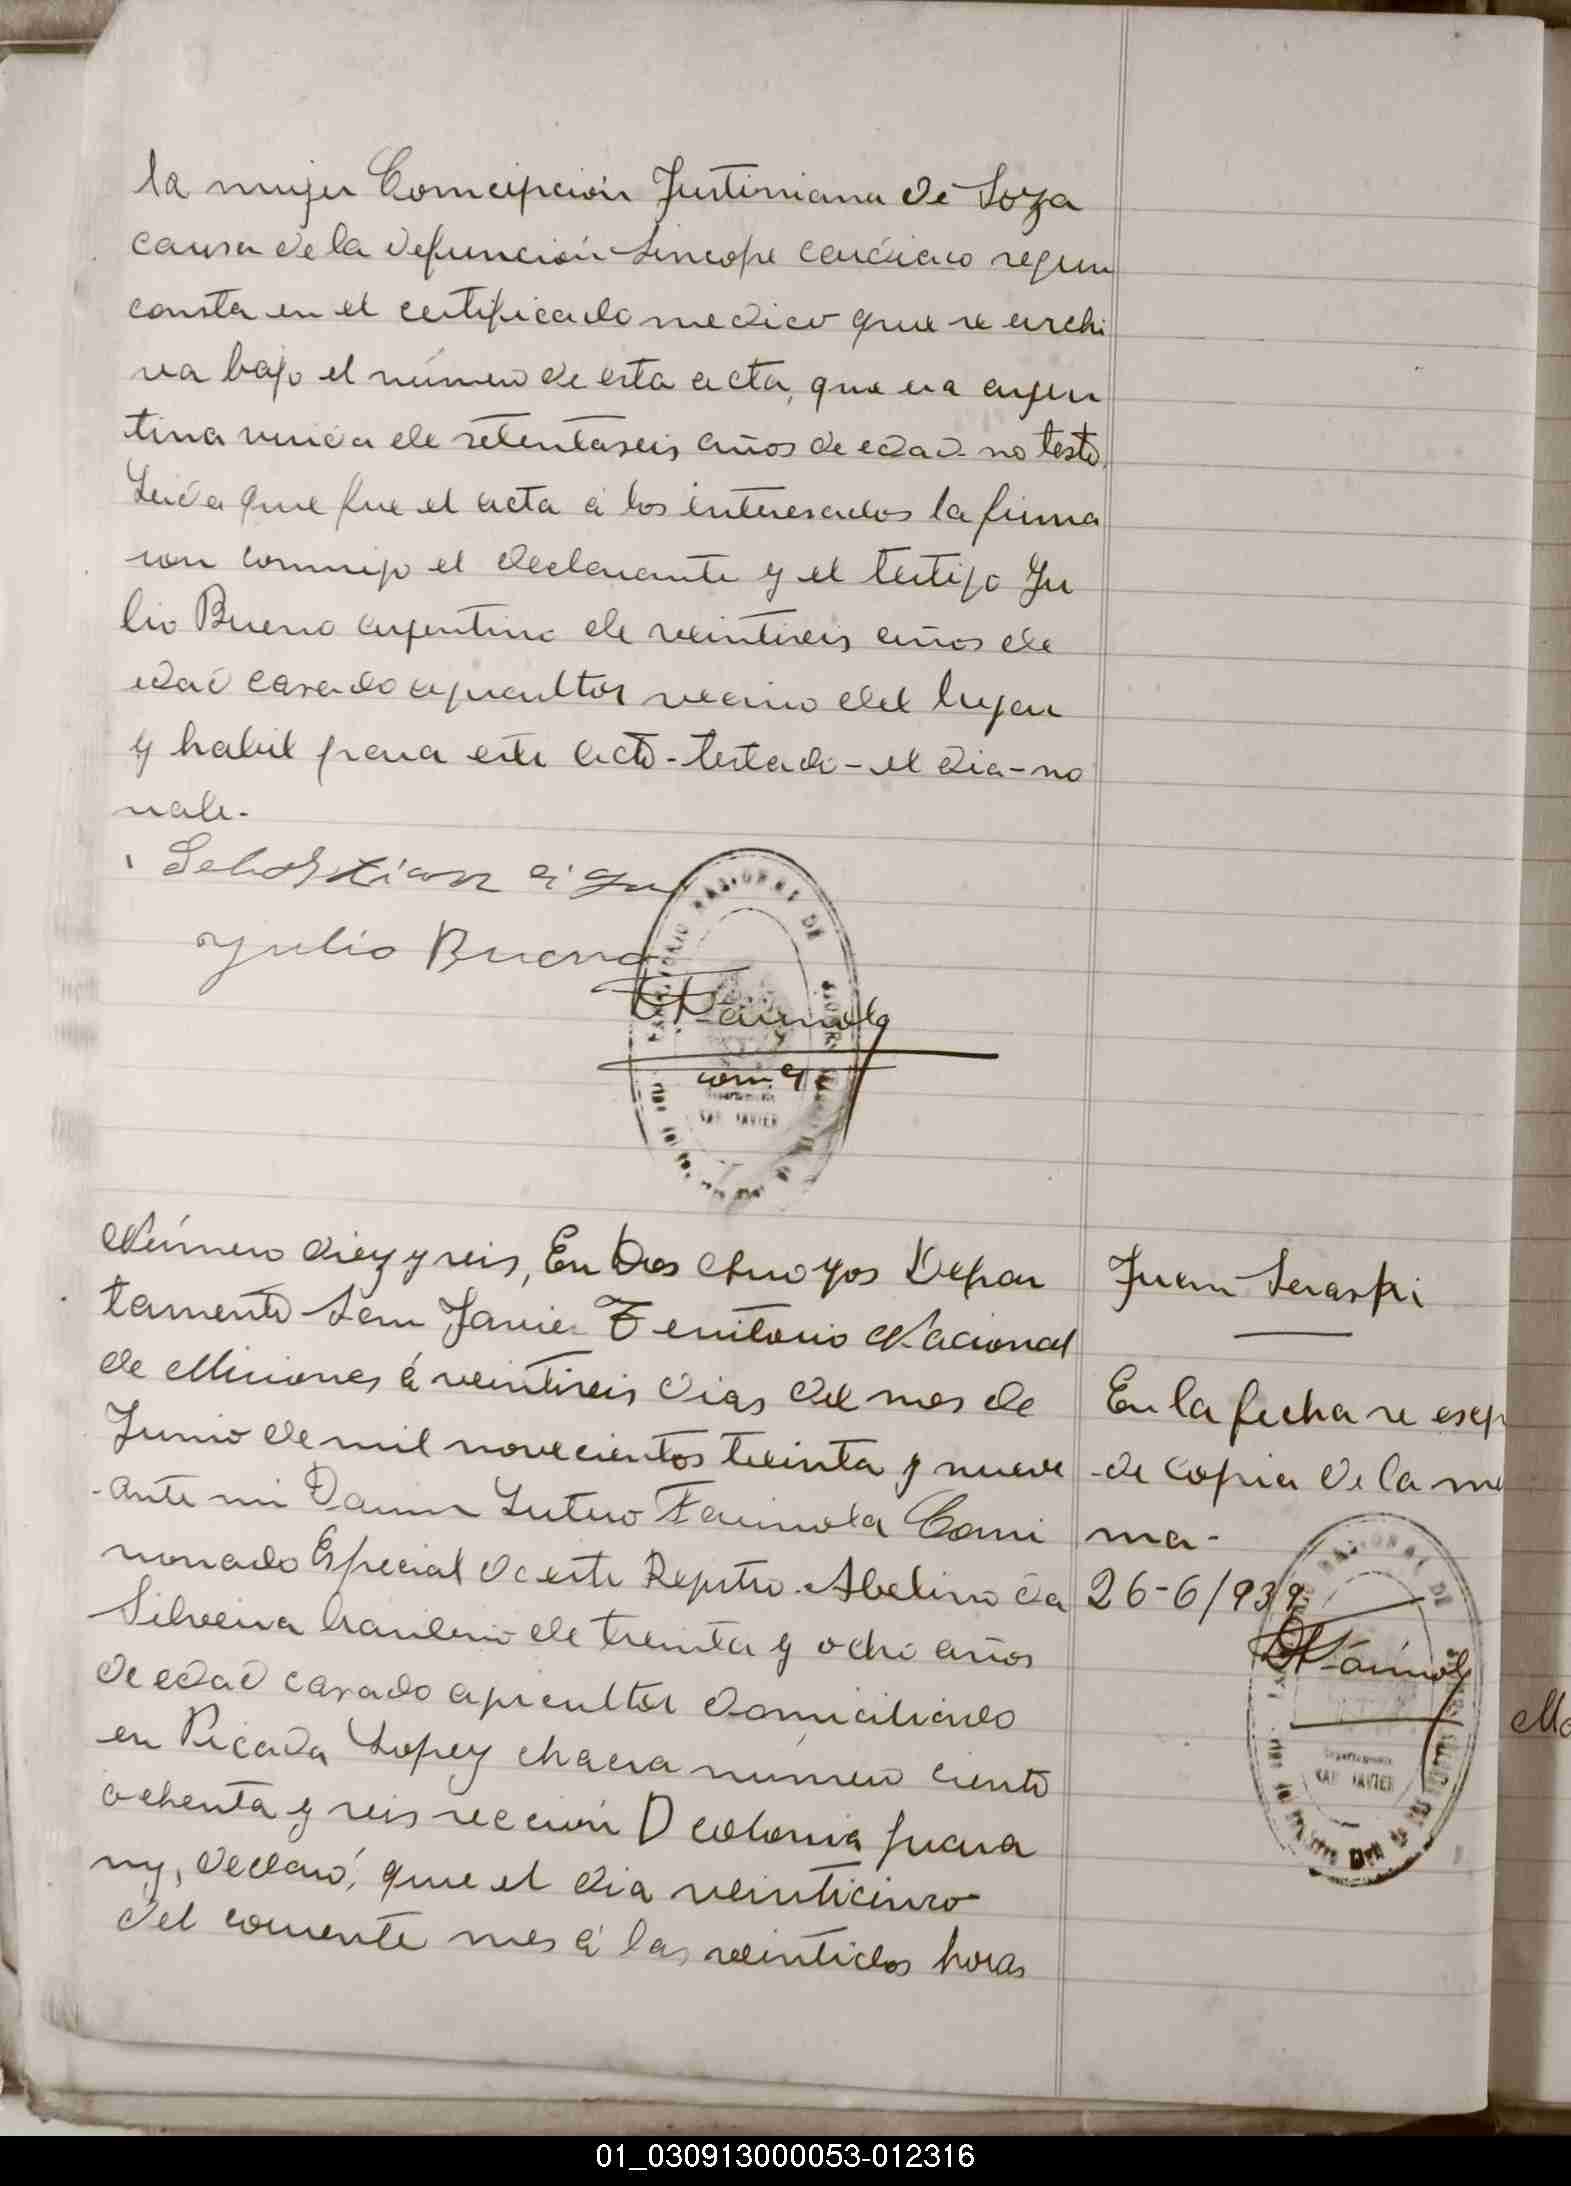 la mujer Concepción Justiniana de Soza
causa de la defunción Sincope cardiaco segun
consta en el certificado medico que se archi
va bajo el número de esta acta, que era argen
tina viuda de setentaseis años de edad no testó.
Leida que fue el acta á los interesados la firma
ron conmigo el declarante y el testigo Ju
lio Bueno argentino de veintiseis años de
edad casado agricultor vecino del lugar
y habil para este acto - testado - el dia - no
vale.
Sebastian
Julio Bueno
com
Departamento
SAN JAVIER
Número diez y seis, En Dos Arroyos Depar
tamento San Javier Territorio Nacional
de Misiones á veintiseis dias del mes de
Junio de mil novecientos treinta y nueve
ante mi Lutero Comi
sionado Especial de este Registro. Abelino da
Silveira brasilero de treinta y ocho años
de edad casado agricultor domiciliado
en Picada Lopez chacra número ciento
ochenta y seis sección D colonia guara
ny, declaró, que el dia veinticinco
del corriente mes á las veintidos horas
Juan Seraski
En la fecha se esep
de copia de la mi
ma-
26-6/939
Departamento
SAN JAVIER
01_030913000053-012316